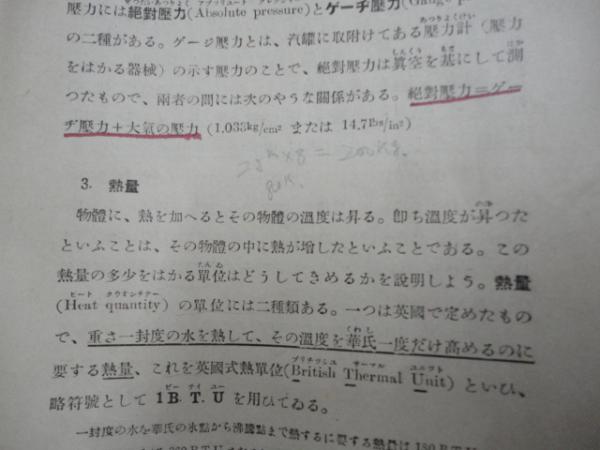 壓力には絕對壓力(Absolute pressure)とゲーヂ壓力(Gauge
の二種がある。ゲージ壓力とは、汽罐に取附けてある壓力計(壓力
をはかる器械)の示す壓力のことで、絕對壓力は眞空を基にして測
つたもので、兩者の間には次のやうな關係がある。絕對壓力=ゲー
ヂ壓力+大氣の壓力(1.033kg/cm² または 14.7lbs/in²)
3. 熱量
物體に、熱を加へるとその物體の溫度は昇る。卽ち溫度が昇つた
といふことは、その物體の中に熱が增したといふことである。この
熱量の多少をはかる單位はどうしてきめるかを說明しよう。熱量
(Heat quantity)の單位には二種類ある。一つは英國で定めたもの
で、重さ一封度の水を熱して、その溫度を華氏一度だけ高めるのに
要する熱量、これを英國式熱單位(British Thermal Unit)といひ、
略符號として 1B.T.U を用ひてゐる。
一封度の水を華氏の氷點から沸騰點まで熱するに要する熱量は 180 B.T.U